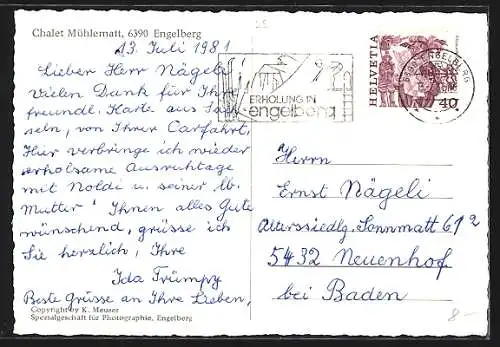 Chalet Mühlematt, 6390 Engelberg
13. Juli 1981
Lieber Herr Nägeli
Vielen Dank für Ihre
freundl. Karte aus
seln, von Ihrer Carfahrt.
Hier verbringe ich wieder
erholsame Ausruhtage
mit Noldi u. seiner lb.
Mutter! Ihnen alles Gute
wünschend, grüsse ich
Sie herzlich, Ihre
Ida Trümpy
Beste Grüsse an Ihre Lieben,
Copyright by K. Meuser
Spezialgeschäft für Photographie, Engelberg
ERHOLUNG IN
engelberg
HELVETIA
40
ENGELBERG
Herrn
Ernst Nägeli
Alterssiedlg. Sonnmatt 612
5432 Neuenhof
bei Baden
8.-